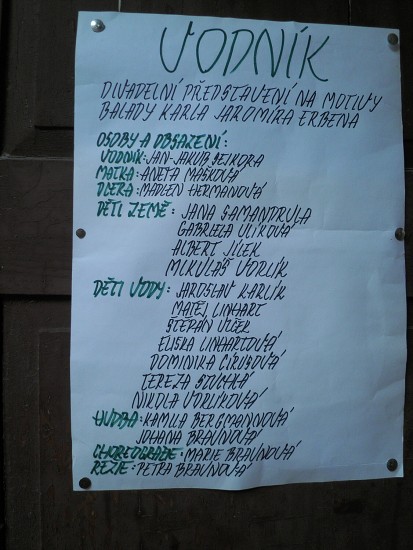 VODNÍK
DIVADELNÍ PŘEDSTAVENÍ NA MOTIVY
BALADY KARLA JAROMÍRA ERBENA
OSOBY A OBSAZENÍ:
VODNÍK: JAN-JAKUB SEJKORA
MATKA: ANETA MAŠKOVÁ
DCERA: MADLEN HERMANOVÁ
DĚTI ZEMĚ: JANA SAMANDRULA
GABRIELA ULIKOVÁ
ALBERT JÍLEK
MIKULÁŠ VORLÍK
DĚTI VODY: JAROSLAV KARLÍK
MATĚJ LINHART
ŠTĚPÁN VLČEK
ELIŠKA LINHARTOVÁ
DOMINIKA CIRUSOVÁ
TEREZA
NIKOLA VORLÍKOVÁ
HUDBA: KAMILA BERGMANNOVÁ
JOHANA BRAUNOVÁ
CHOREOGRAFIE: MARIE BRAUNOVÁ
REŽIE: PETRA BRAUNOVÁ